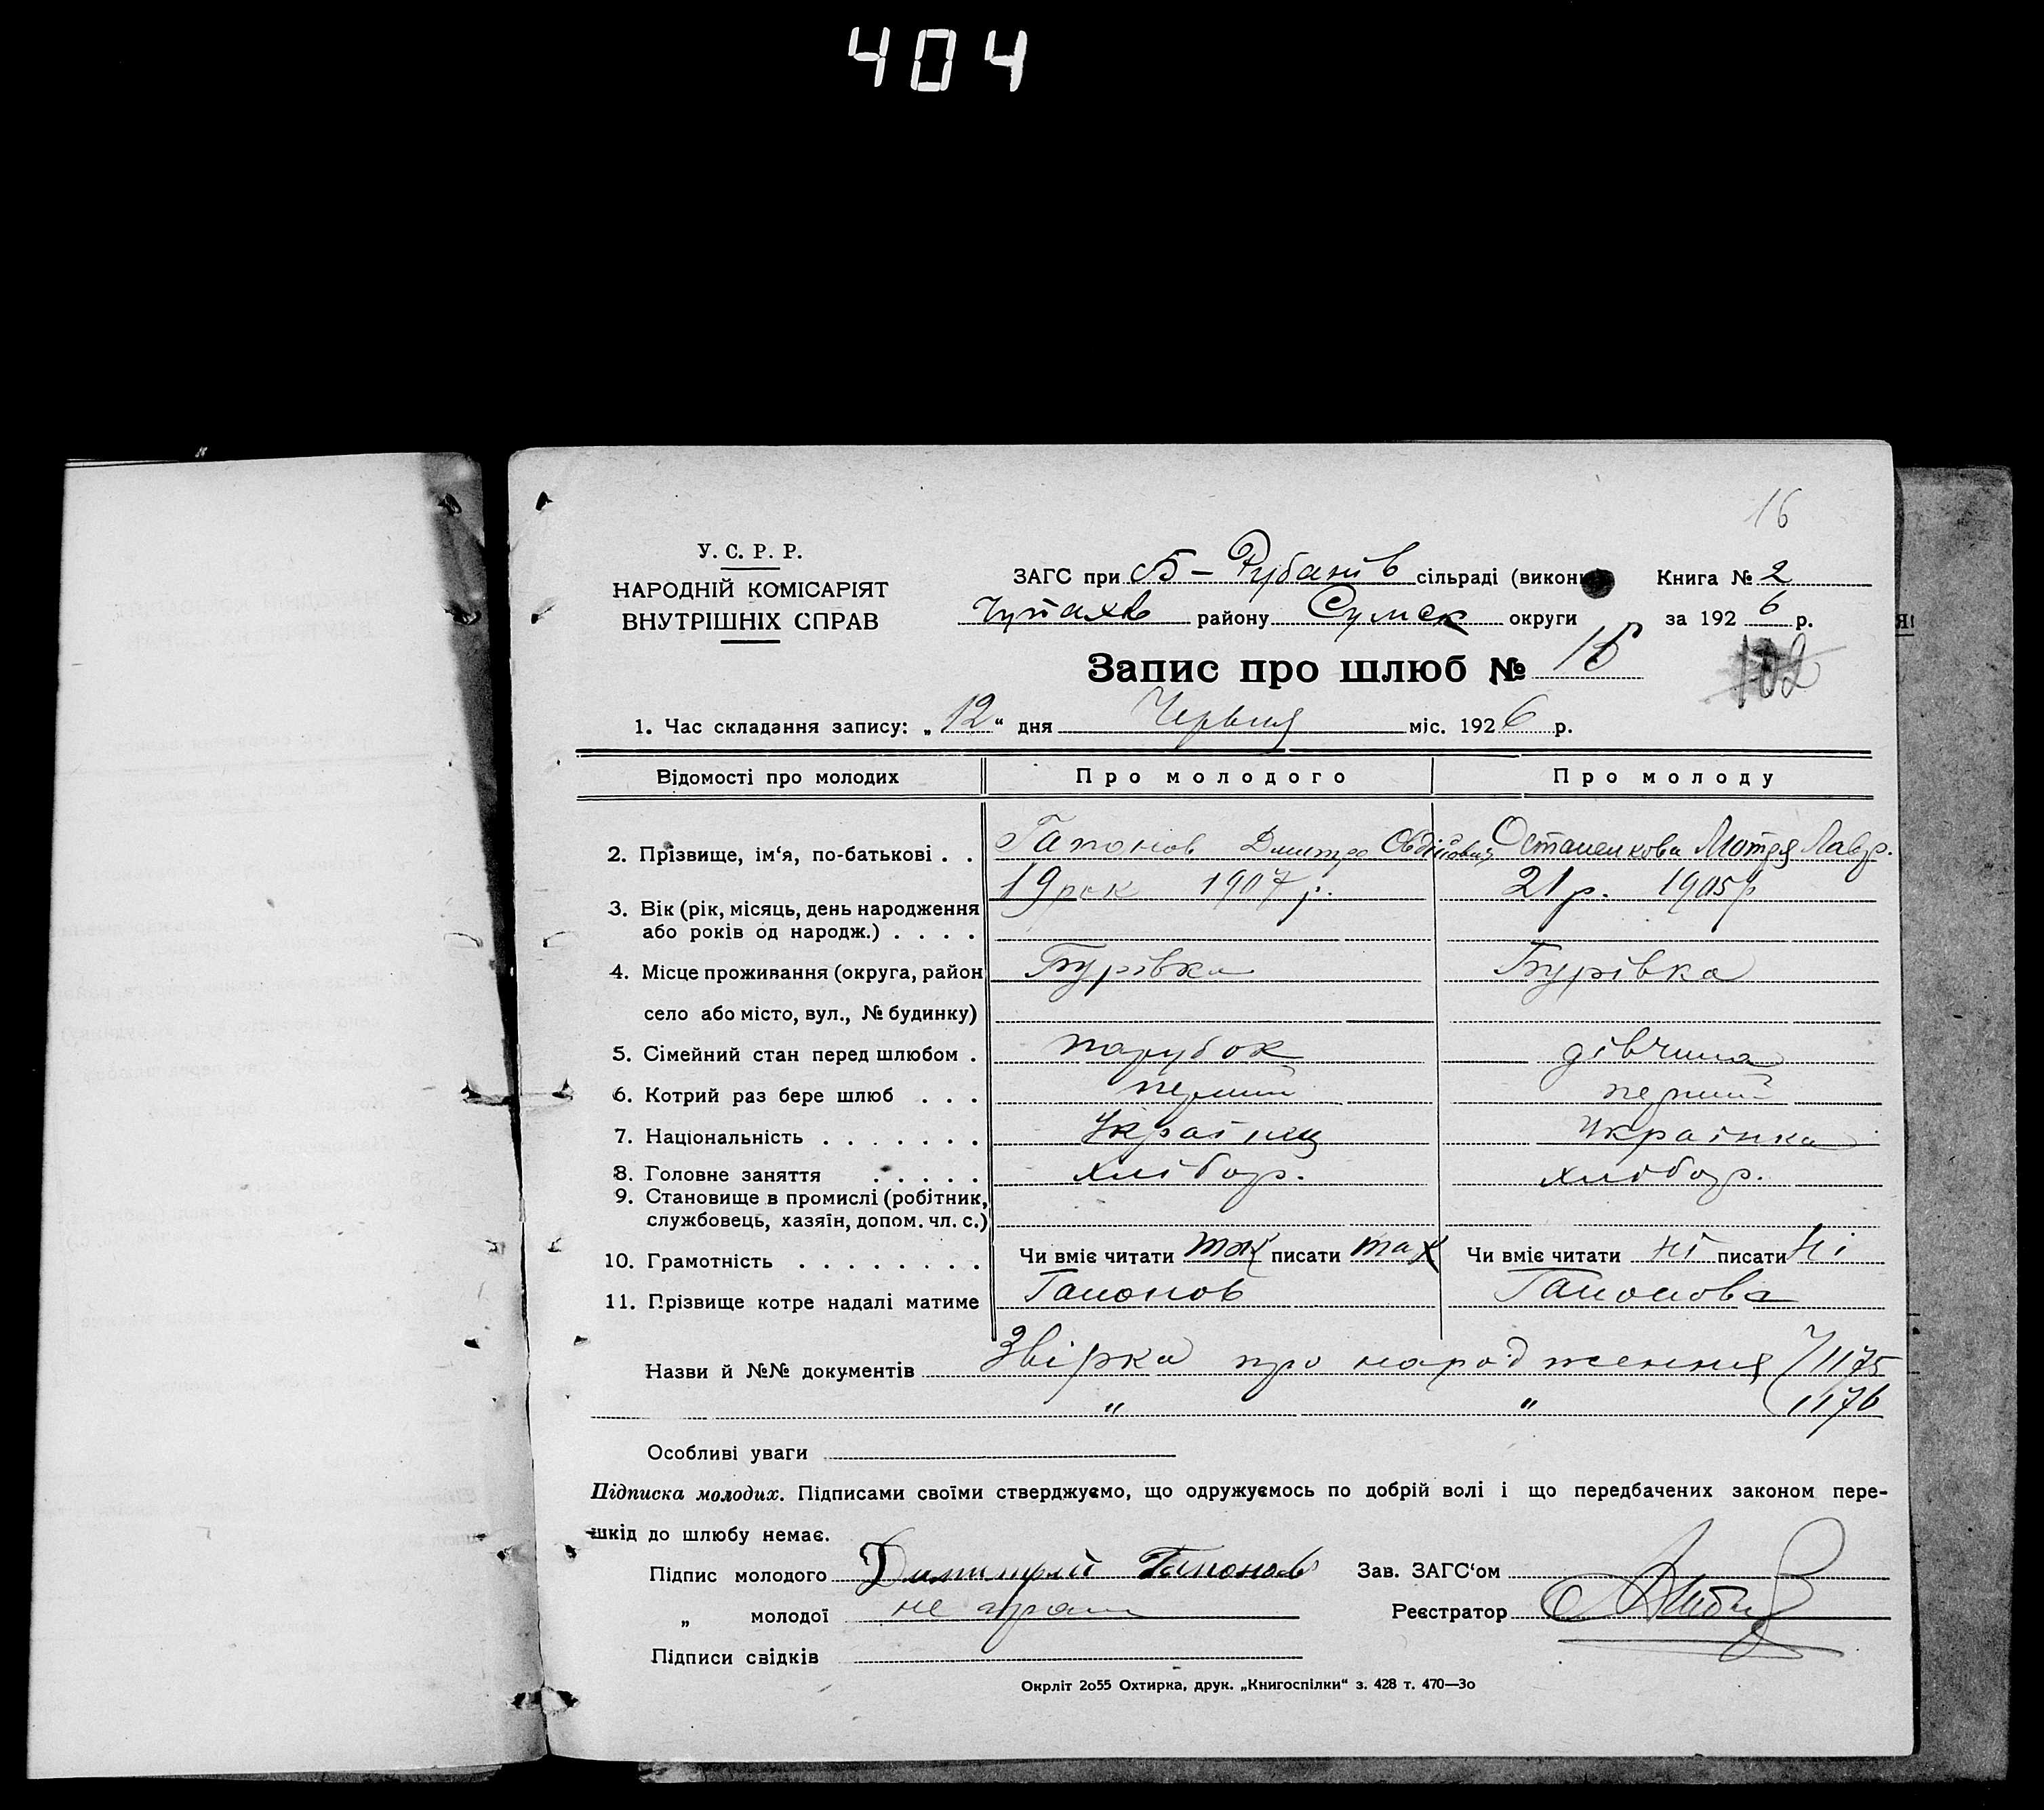 404
16
У. С. Р. Р.
НАРОДНІЙ КОМІСАРІЯТ
ВНУТРІШНІХ СПРАВ
ЗАГС при Б-Рубанів сільраді (викон Книга № 2
Чупахів району Сумск округи за 1926 р.
Запис про шлюб № 15
102
1. Час складання запису: „12“ дня Червня міс. 1926 р.
Відомості про молодих Про молодого Про молоду
2. Прізвище, ім‘я, по-батькові . . Гапонов Дмитро Овдійович Остапенкова Мотря Лавр.
19 рок 1907 р. 21 р. 1905 р
3. Вік (рік, місяць, день народження
або років од народж.) . . . .
4. Місце проживання (округа, район Бурівка Бурівка
село або місто, вул., № будинку)
5. Сімейний стан перед шлюбом . парубок дівчина
6. Котрий раз бере шлюб . . . перший перший
7. Національність . . . . . . . Українц Українка
8. Головне заняття . . . . . хлібор. хлібор.
9. Становище в промислі (робітник,
службовець, хазяїн, допом. чл. с.)
10. Грамотність . . . . . . . . Чи вміє читати так писати так Чи вміє читати ні писати ні
11. Прізвище котре надалі матиме Гапонов Гапонова
Назви й №№ документів Звірка про народження 1175
„ „ 1176
Особливі уваги
Підписка молодих. Підписами своїми стверджуємо, що одружуємось по добрій волі і що передбачених законом пере-
шкід до шлюбу немає.
Підпис молодого Димитрий Гапонов Зав. ЗАГС‘ом
„ молодої не грам Реєстратор
Підписи свідків
Окрліт 2о55 Охтирка, друк. „Книгоспілки“ з. 428 т. 470—3о